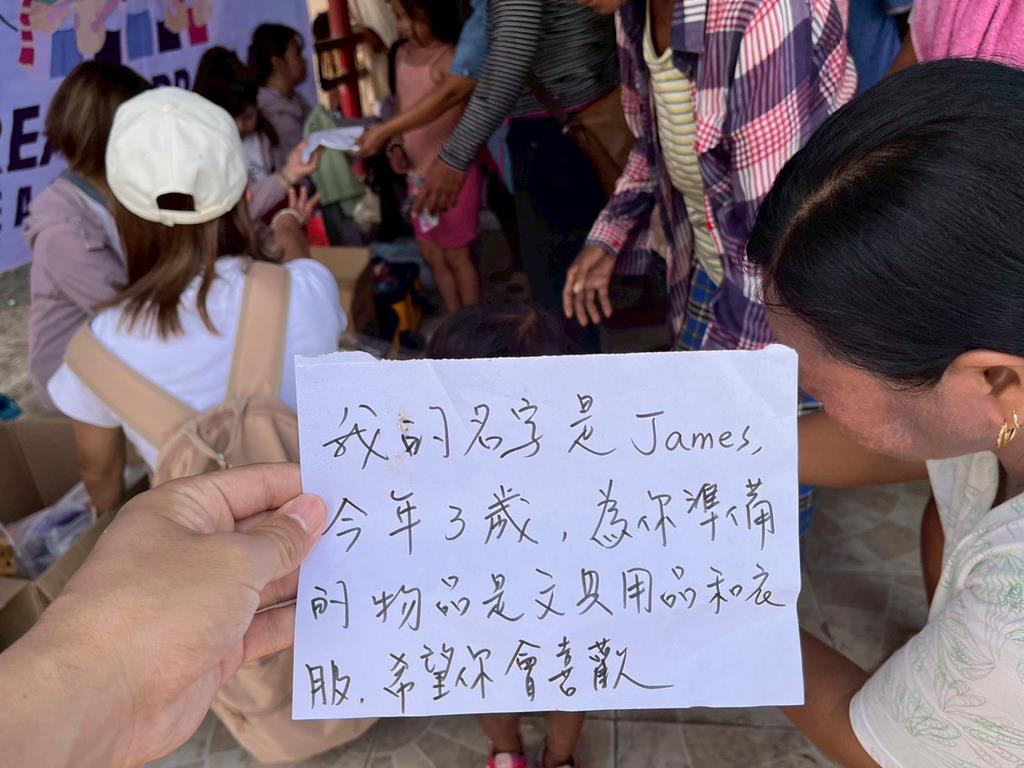 我的名字是 James,
今年3歲,為你準備
的物品是文具用品和衣
服.希望你會喜歡